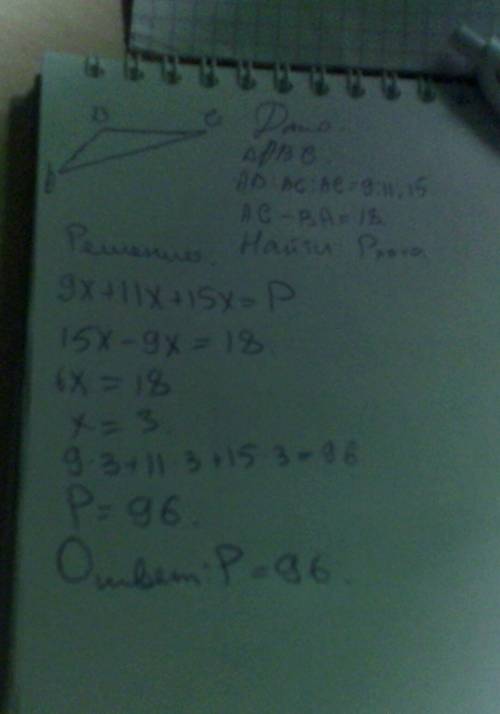 B C
Дано.
Δ ABC.
AB:AC:AC=9:11:15
AC-BA=18
Решение. Найти P
9x+11x+15x=P
15x-9x=18
6x=18
x=3
9·3+11·3+15·3=96
P=96.
Ответ: P=96.